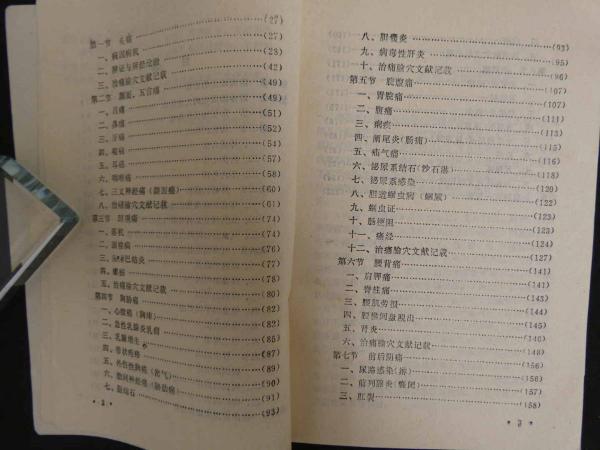 (27)
第一节 头痛 (27)
一、病因病机 (28)
二、辨证与
三、治痛腧穴文献记载 (42)
第二节 颜面、五官痛 (49)
一、目痛 (49)
二、鼻痛 (51)
三、牙痛 (52)
(54)
五、耳痛 (57)
六、咽喉痛 (58)
七、三叉神经痛(颜面痛) (60)
八、治痛腧穴文献记载 (61)
第三节 颈项痛 (74)
一、落枕 (74)
二、颈椎病 (76)
三、淋巴结炎 (77)
四、瘰疬 (78)
五、治痛腧穴文献记载 (80)
第四节 胸胁痛 (82)
一、心绞痛(胸痹) (82)
二、急性乳腺炎乳痈 (85)
三、乳腺增生 (87)
四、带状疱疹 (87)
五、外伤性胸痛(岔气) (89)
六、肋间神经痛(胁肋痛) (90)
七、胆结石 (91)
(93)
• 2 •
八、胆囊炎 (93)
九、病毒性肝炎 (95)
十、治痛腧穴文献记载 (96)
第五节 脘腹痛 (107)
一、胃脘痛 (107)
二、腹痛 (111)
三、痢疾 (113)
四、阑尾炎(肠痈) (115)
五、疝气痛 (116)
六、泌尿系结石(砂石淋) (118)
七、泌尿系感染 (120)
八、胆道蛔虫病(蛔厥) (122)
九、蛔虫证 (123)
十、肠梗阻 (123)
十一、痛经 (124)
十二、治痛腧穴文献记载 (127)
第六节 腰背痛 (141)
一、肩胛痛 (141)
二、脊柱痛 (143)
三、腰肌劳损 (144)
四、腰椎间盘脱出 (145)
五、肾炎 (146)
六、治痛腧穴文献记载 (148)
第七节 前后阴痛 (156)
一、尿路感染(淋) (156)
二、前列腺炎(癃闭) (157)
三、肛裂 (158)
• 3 •